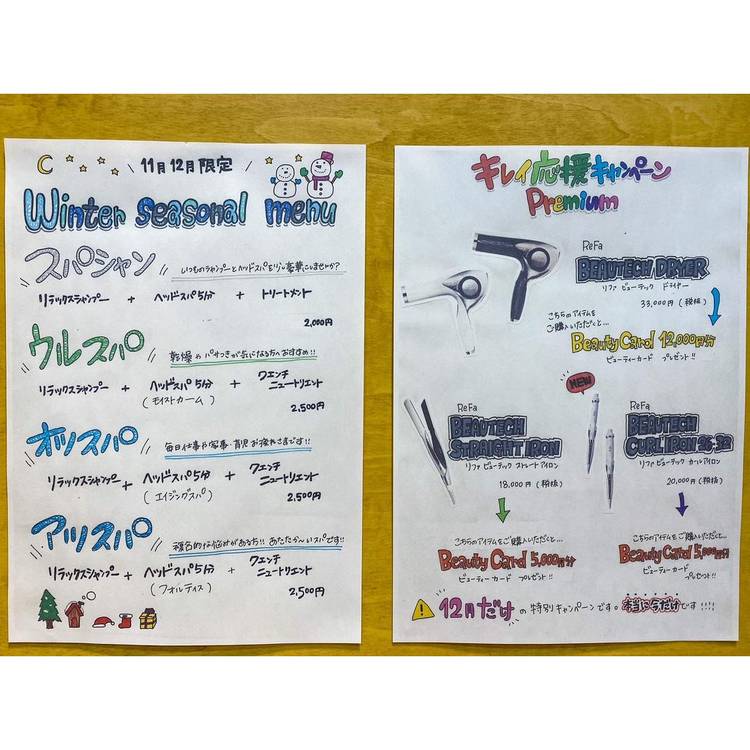 11月12月限定
Winter seasonal menu
スパシャン
いつものシャンプーとヘッドスパを少し豪華にしませんか?
リラックスシャンプー + ヘッドスパ5分 + トリートメント
2,000円
ウルスパ
乾燥やパサつきが気になる方へおすすめ!!
リラックスシャンプー + ヘッドスパ5分 + クエンチ
(モイストカーム) ニュートリエント
2,500円
オツスパ
毎日仕事や家事・育児お疲れさまです!!
リラックスシャンプー + ヘッドスパ5分 + クエンチ
(エイジングスパ) ニュートリエント
2,500円
アツスパ
複合的な悩みがある方!! あたたかいスパです!!
リラックスシャンプー + ヘッドスパ5分 + クエンチ
(フォルティス) ニュートリエント
2,500円
キレイ応援キャンペーン
Premium
ReFa
BEAUTECH DRYER
リファ ビューテック ドライヤー
33,000円(税抜)
こちらのアイテムを
ご購入いただくと…
Beauty Card 12,000円分
ビューティーカード プレゼント!!
NEW
ReFa
BEAUTECH
STRAIGHT IRON
リファ ビューテック ストレートアイロン
18,000円(税抜)
こちらのアイテムをご購入いただくと…
Beauty Card 5,000円分
ビューティーカード プレゼント!!
ReFa
BEAUTECH
CURL IRON 26・32
リファ ビューテック カールアイロン
20,000円(税抜)
こちらのアイテムをご購入いただくと…
Beauty Card 5,000円分
ビューティーカード
プレゼント!!
12月だけの特別キャンペーンです。本当に今だけです!!!!